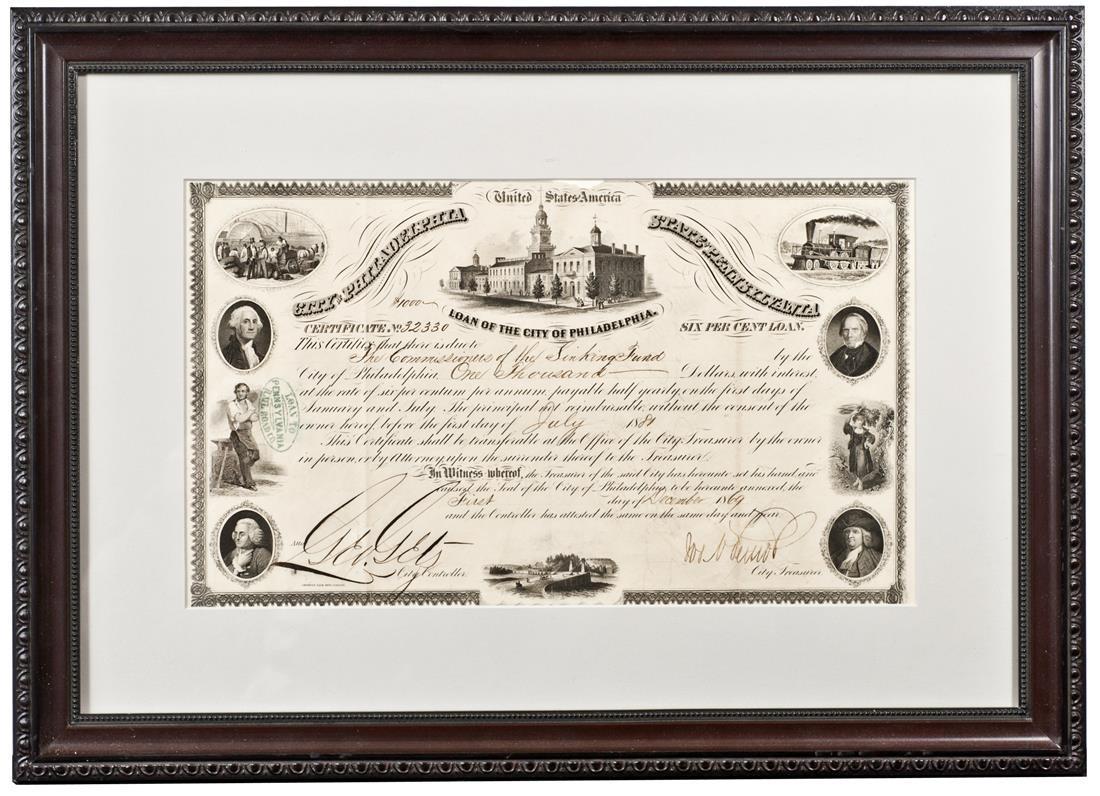 United States America
CITY OF PHILADELPHIA
STATE OF PENNSYLVANIA
$1000
LOAN OF THE CITY OF PHILADELPHIA.
CERTIFICATE No. 32330
SIX PER CENT LOAN.
This Certifies that there is due to
The Commissioners of the Sinking Fund by the
City of Philadelphia, One Thousand Dollars, with interest,
at the rate of six per centum per annum, payable half yearly, on the first days of
January and July. The principal not reimbursable, without the consent of the
owner hereof, before the first day of July 18
This Certificate shall be transferable at the Office of the City Treasurer by the owner
in person, or by Attorney, upon the surrender thereof to the Treasurer.
LOAN TO
PENNSYLVANIA
RAIL ROAD CO.
In Witness whereof, the Treasurer of the said City has hereunto set his hand and
caused the Seal of the City of Philadelphia, to be hereunto annexed, the
First day of December 1869
and the Controller has attested the same on the same day and year.
City Controller.
City Treasurer.